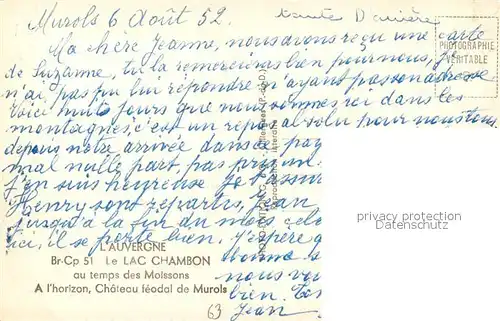 Murols 6 Août 52.
tante Danière
Ma chère Jeanne, nous avons reçu une carte
de Suzanne, tu la remercieras bien pour nous, je
n'ai pas pu lui répondre n'ayant pas son adresse
Voici huit jours que nous sommes ici dans les
montagnes, c'est un repos absolu pour nous tous
depuis notre arrivée dans ce pay
mal nulle part, pas pris un
J'en suis heureuse je t'assur
Henry sont repartis, Jean
jusqu'à la fin du mois, cela
ici, il se porte bien. J'espère q
bonne s
nous vo
bien.
Jean
PHOTOGRAPHIE
VÉRITABLE
L'AUVERGNE
Br-Cp 51 Le LAC CHAMBON
au temps des Moissons
A l'horizon, Château féodal de Murols
63
privacy protection
Datenschutz